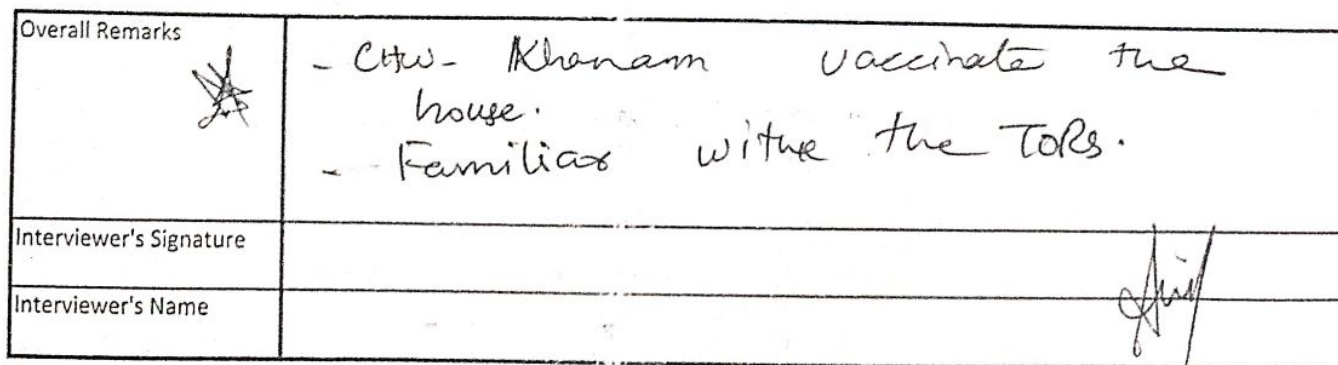 Overall Remarks
- CHW- Khanam vaccinate the
house.
- Familiar withe the ToRs.
Interviewer's Signature
Interviewer's Name